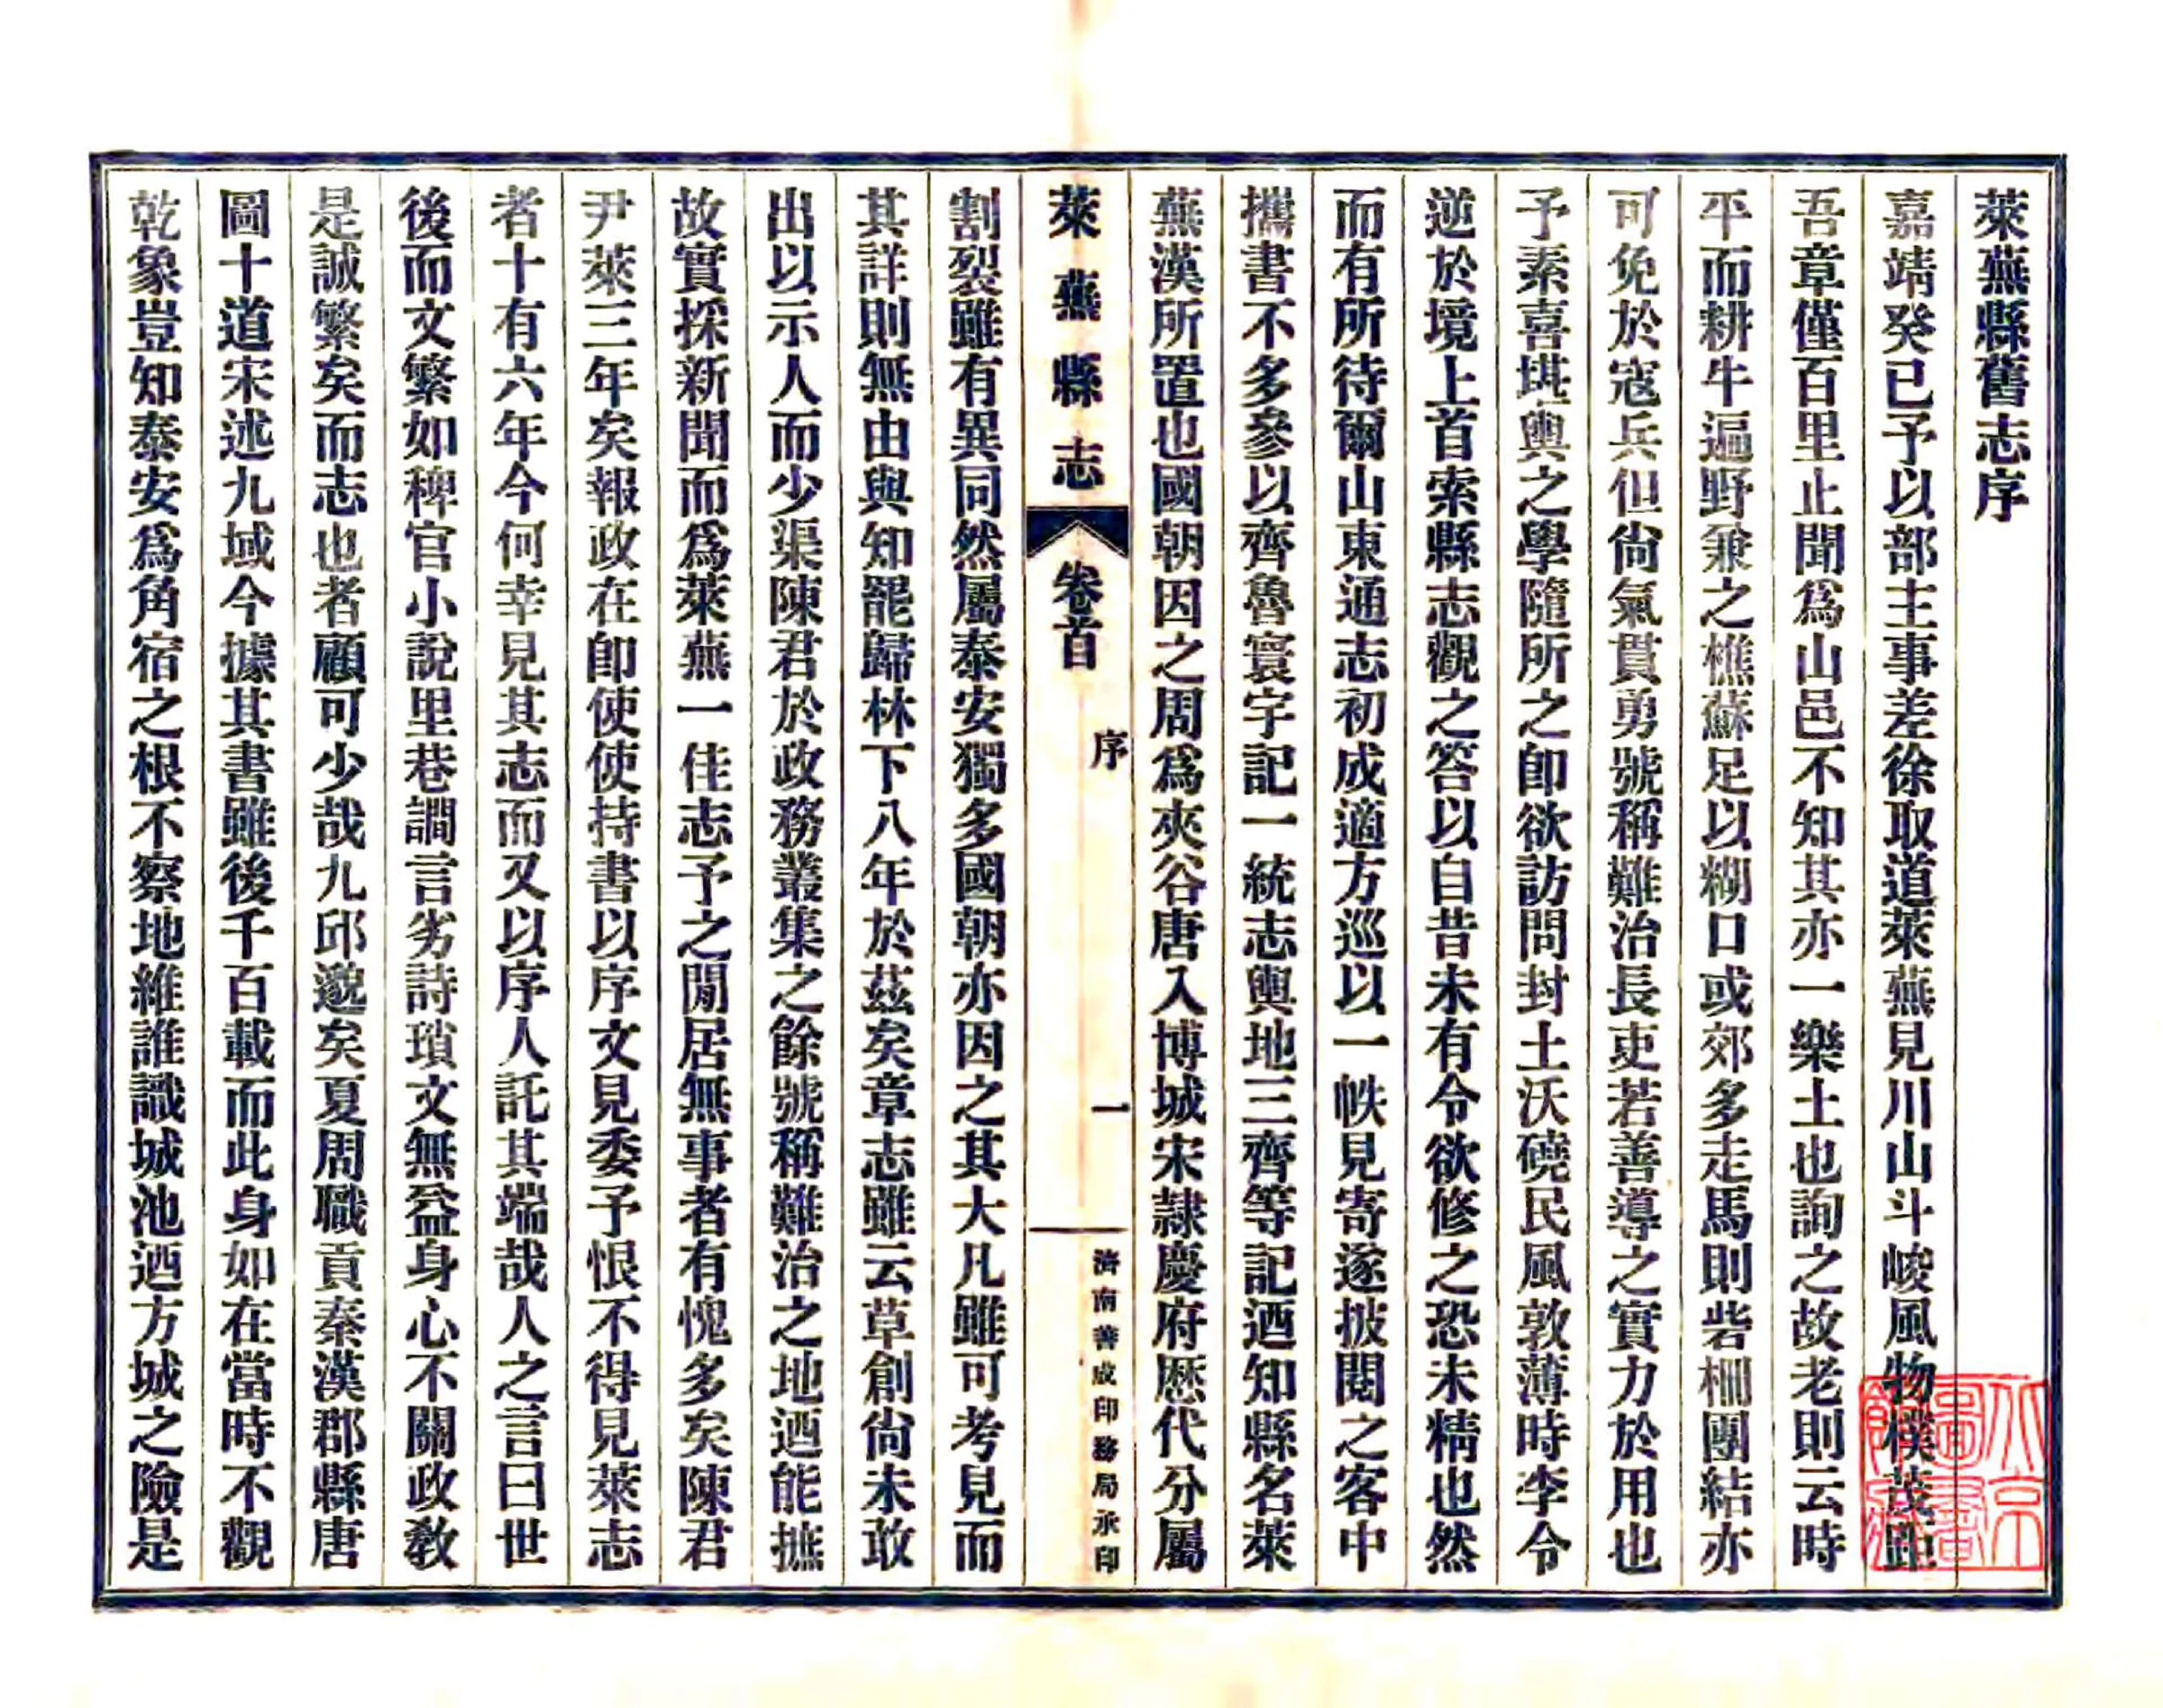 萊蕪縣舊志序
嘉靖癸巳予以部主事差徐取道萊蕪見川山斗峻風物樸茂距
吾章僅百里止聞爲山邑不知其亦一樂土也詢之故老則云時
平而耕牛遍野兼之樵蘇足以糊口或郊多走馬則砦柵團結亦
可免於寇兵但尙氣貫勇號稱難治長吏若善導之實力於用也
予素喜堪輿之學隨所之卽欲訪問封土沃磽民風敦薄時李令
逆於境上首索縣志觀之答以自昔未有令欲修之恐未精也然
而有所待爾山東通志初成適方巡以一帙見寄遂披閱之客中
攜書不多參以齊魯寰宇記一統志輿地三齊等記迺知縣名萊
蕪漢所置也國朝因之周爲夾谷唐入博城宋隸慶府歷代分屬
萊蕪縣志 卷首 序 一 濟南善成印務局承印
割裂雖有異同然屬泰安獨多國朝亦因之其大凡雖可考見而
其詳則無由與知罷歸林下八年於茲矣章志雖云草創尙未敢
出以示人而少渠陳君於政務叢集之餘號稱難治之地迺能摭
故實採新聞而爲萊蕪一佳志予之閒居無事者有愧多矣陳君
尹萊三年矣報政在卽使使持書以序文見委予恨不得見萊志
者十有六年今何幸見其志而又以序人託其端哉人之言曰世
後而文繁如稗官小說里巷讕言劣詩瑣文無益身心不關政敎
是誠繁矣而志也者顧可少哉九邱邈矣夏周職貢秦漢郡縣唐
圖十道宋述九域今據其書雖後千百載而此身如在當時不觀
乾象豈知泰安爲角宿之根不察地維誰識城池迺方城之險是